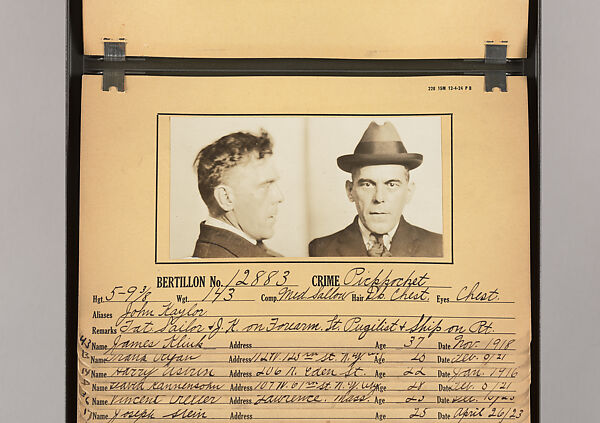 228 15M 12-4-24 P B
BERTILLON No. 12883 CRIME Pickpocket
Hgt. 5-9 3/8 Wgt. 143 Comp. Med Sallow Hair Dk. Chest. Eyes Chest.
Aliases John Kaylor
Remarks Tat Sailor & J. K on Forearm. St. Pugilist & Ship on Rt.
Name James Klink Address Age 37 Date Nov. 1918
Name Frank Address 112 W. 123rd St. N.Y. City Age 20 Date
Name Harry Address 206 N. Eden St. Age 22 Date Jan. 1916
Name David Address 107 W. St. N.Y. City Age 28 Date
Name Vincent Address Lawrence, Mass. Age Date
Name Joseph Stein Address Age 25 Date April 26/23